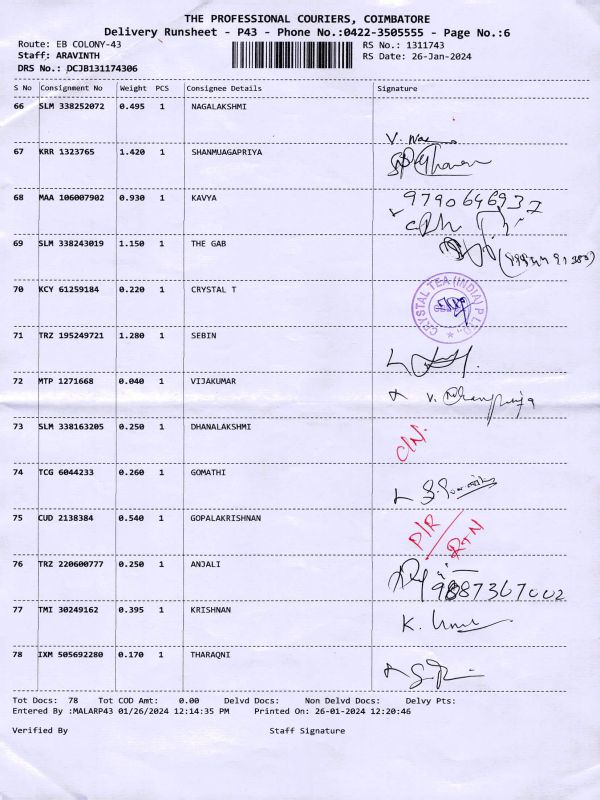 THE PROFESSIONAL COURIERS, COIMBATORE
Delivery Runsheet - P43 - Phone No.:0422-3505555 - Page No.:6
Route: EB COLONY-43 RS No.: 1311743
Staff: ARAVINTH RS Date: 26-Jan-2024
DRS No.: DCJB131174306
S No Consignment No Weight PCS Consignee Details Signature
66 SLM 338252072 0.495 1 NAGALAKSHMI
67 KRR 1323765 1.420 1 SHANMUAGAPRIYA
68 MAA 106007902 0.930 1 KAVYA 9790646937
69 SLM 338243019 1.150 1 THE GAB
70 KCY 61259184 0.220 1 CRYSTAL T CRYSTAL TEA (INDIA) P LTD
71 TRZ 195249721 1.280 1 SEBIN
72 MTP 1271668 0.040 1 VIJAKUMAR
73 SLM 338163205 0.250 1 DHANALAKSHMI C/N.
74 TCG 6044233 0.260 1 GOMATHI
75 CUD 2138384 0.540 1 GOPALAKRISHNAN P/R RTN
76 TRZ 220600777 0.250 1 ANJALI
77 TMI 30249162 0.395 1 KRISHNAN
78 IXM 505692280 0.170 1 THARAQNI
Tot Docs: 78 Tot COD Amt: 0.00 Delvd Docs: Non Delvd Docs: Delvy Pts:
Entered By :MALARP43 01/26/2024 12:14:35 PM Printed On: 26-01-2024 12:20:46
Verified By Staff Signature